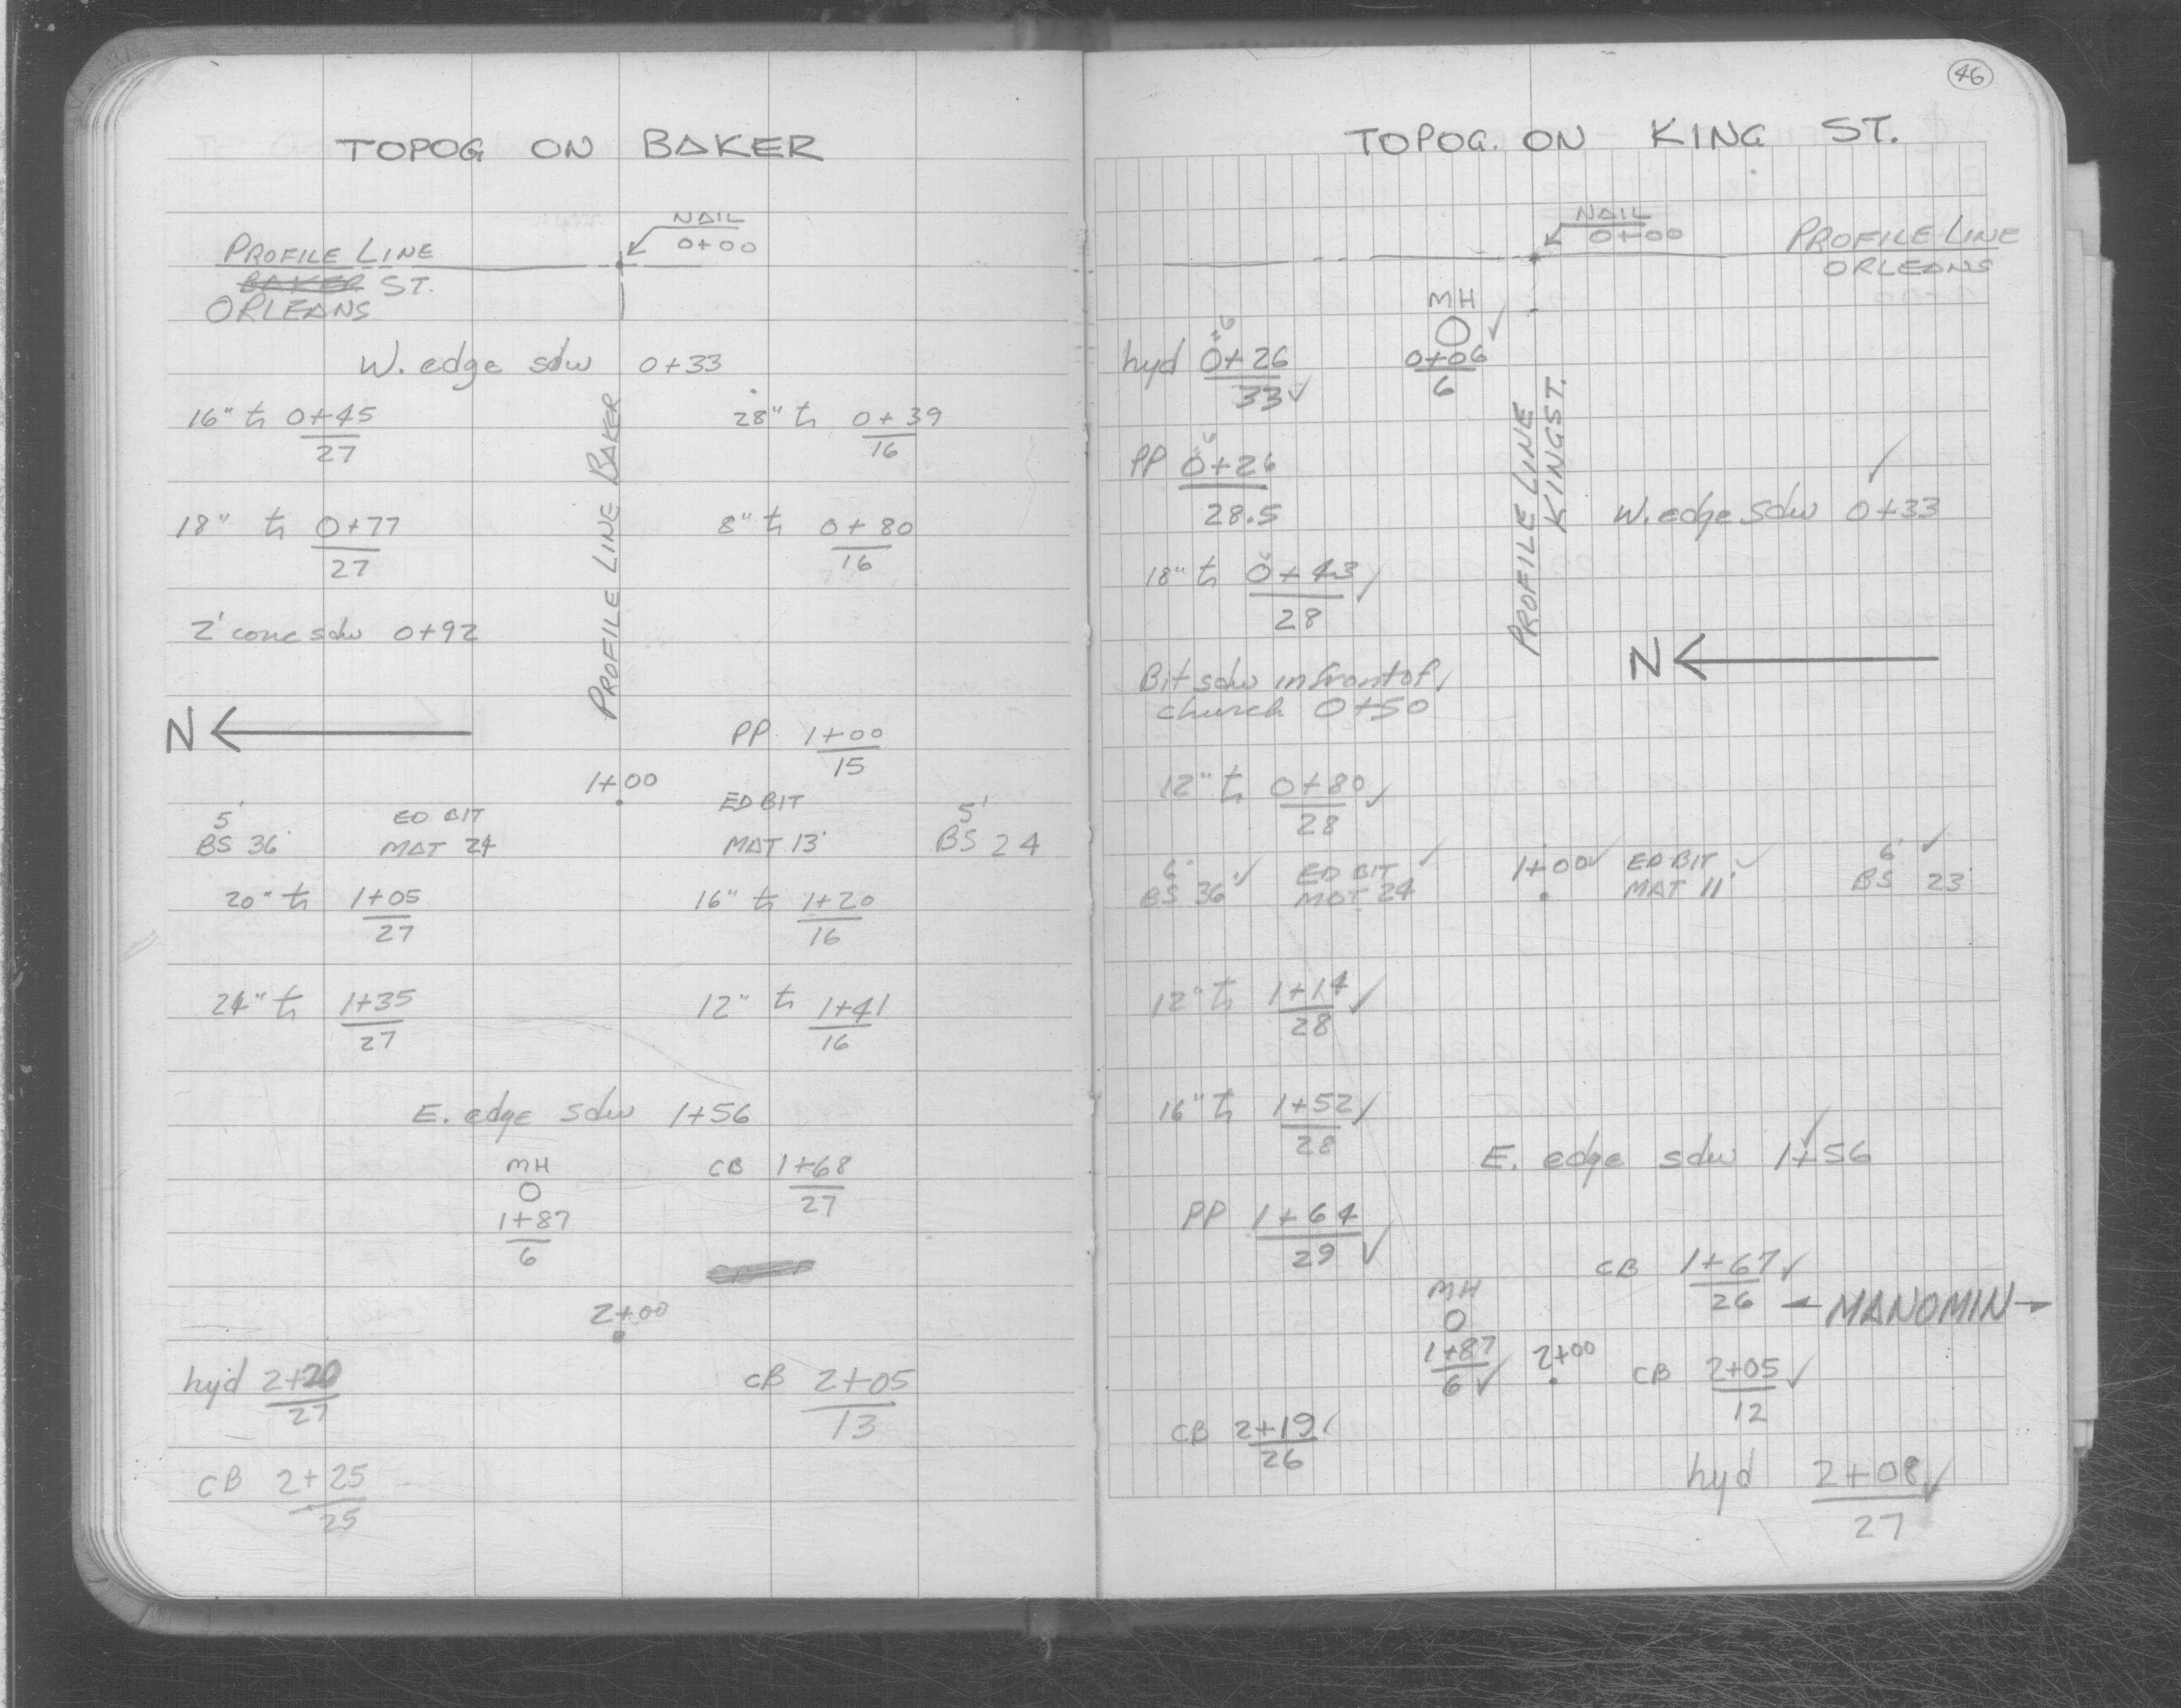 TOPOG ON BAKER
NAIL
0+00
PROFILE LINE
BAKER ST.
ORLEANS
W. edge sdw 0+33
16" tr 0+45
27
28" tr 0+39
16
PROFILE LINE BAKER
18" tr 0+77
27
8" tr 0+80
16
2' conc sdw 0+92
N
PP 1+00
15
1+00
5'
BS 36'
ED BIT
MAT 24
ED BIT
MAT 13'
5'
BS 24
20" tr 1+05
27
16" tr 1+20
16
24" tr 1+35
27
12" tr 1+41
16
E. edge sdw 1+56
MH
1+87
6
CB 1+68
27
2+00
hyd 2+20
27
CB 2+05
13
CB 2+25
25
46
TOPOG. ON KING ST.
NAIL
0+00
PROFILE LINE
ORLEANS
MH
0+06
6
hyd 0+26
33
PP 0+26
28.5
PROFILE LINE
KING ST.
W. edge sdw 0+33
18" tr 0+43
28
N
Bit sdw in front of
church 0+50
12" tr 0+80
28
6'
BS 36'
ED BIT
MAT 24
1+00
ED BIT
MAT 11'
6'
BS 23
12" tr 1+14
28
16" tr 1+52
28
E. edge sdw 1+56
PP 1+64
29
CB 1+67
26
MANOMIN
MH
1+87
6
2+00
CB 2+05
12
CB 2+19
26
hyd 2+08
27